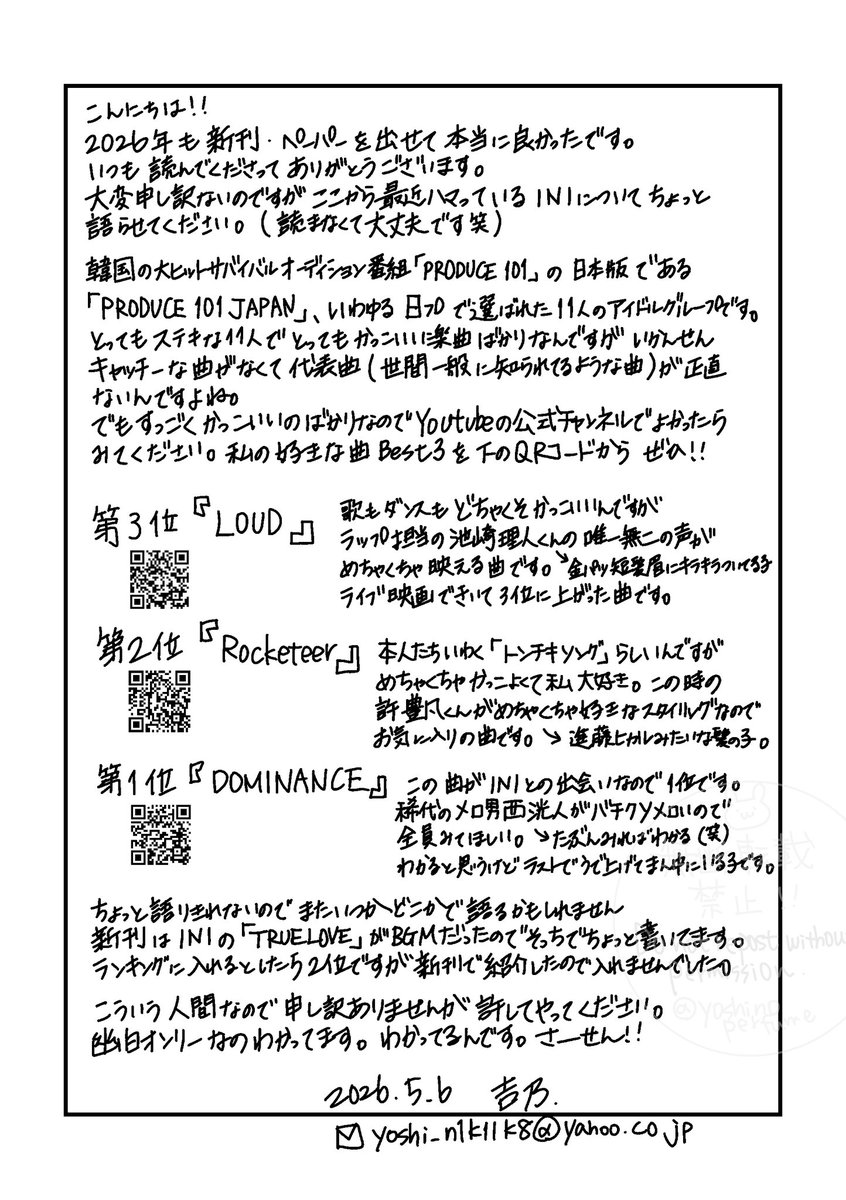 こんにちは!!
2026年も新刊・ペーパーを出せて本当に良かったです。
いつも読んでくださってありがとうございます。
大変申し訳ないのですがここから最近ハマっているINIについてちょっと
語らせてください。(読まなくて大丈夫です笑)
韓国の大ヒットサバイバルオーディション番組「PRODUCE 101」の日本版である
「PRODUCE 101 JAPAN」、いわゆる日プで選ばれた11人のアイドルグループです。
とってもステキな11人でとってもかっこいい楽曲ばかりなんですがいかんせん
キャッチーな曲がなくて代表曲(世間一般に知られてるような曲)が正直
ないんですよね。
でもすっごくかっこいいのばかりなのでYoutubeの公式チャンネルでよかったら
みてください。私の好きな曲Best3を下のQRコードからぜひ!!
第3位『LOUD』
歌もダンスもどちゃくそかっこいいんですが
ラップ担当の池﨑理人くんの唯一無二の声が
めちゃくちゃ映える曲です。→金パツ短髪眉にキラキラついてる子
ライブ映画できいて3位に上がった曲です。
第2位『Rocketeer』
本人たちいわく「トンチキソング」らしいんですが
めちゃくちゃかっこよくて私大好き。この時の
許豊凡くんがめちゃくちゃ好きなスタイリングなので
お気に入りの曲です。→進藤ヒカルみたいな髪の子。
第1位『DOMINANCE』
この曲がINIとの出会いなので1位です。
稀代のメロ男西洸人がバチクソメロいので
全員みてほしい。→たぶんみればわかる(笑)
わかると思うけどラストでうで上げてまん中にいる子です。
ちょっと語りきれないのでまたいつかどこかで語るかもしれません
新刊はINIの「TRUE LOVE」がBGMだったのでそっちでちょっと書いてます。
ランキングに入れるとしたら2位ですが新刊で紹介したので入れませんでした。
こういう人間なので申し訳ありませんが許してやってください。
幽白オンリーなのわかってます。わかってるんです。さーせん!!
2026.5.6 吉乃.
yoshi_n1k11k8@yahoo.co.jp
転載
禁止!!
repost without
permission.
@yoshino
perfume